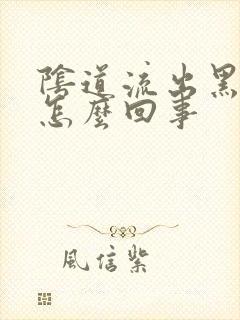 陰道流出黑
怎麼回事
風信紫